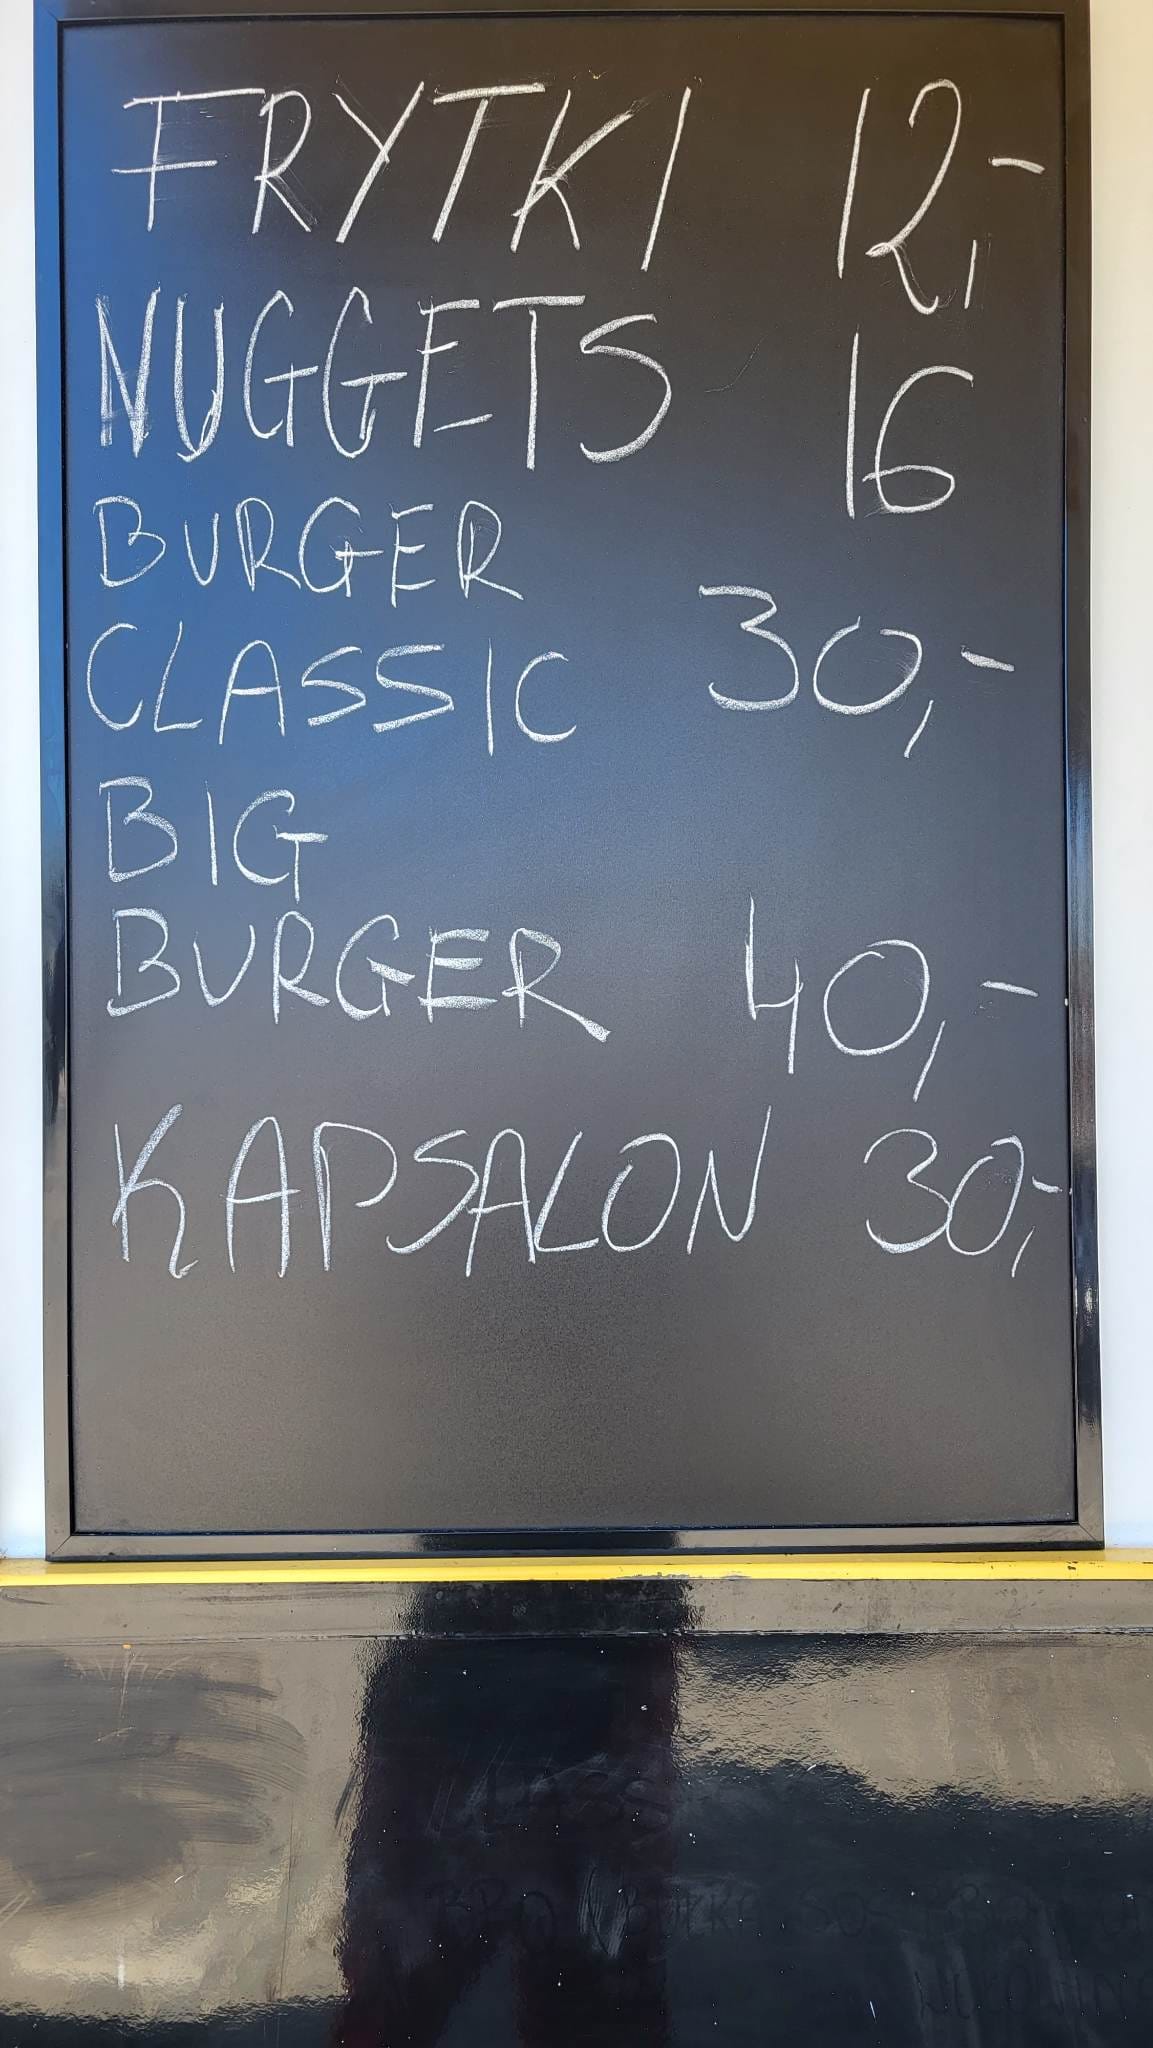 FRYTKI 12,-
NUGGETS 16
BURGER
CLASSIC 30,-
BIG
BURGER 40,-
KAPSALON 30,-